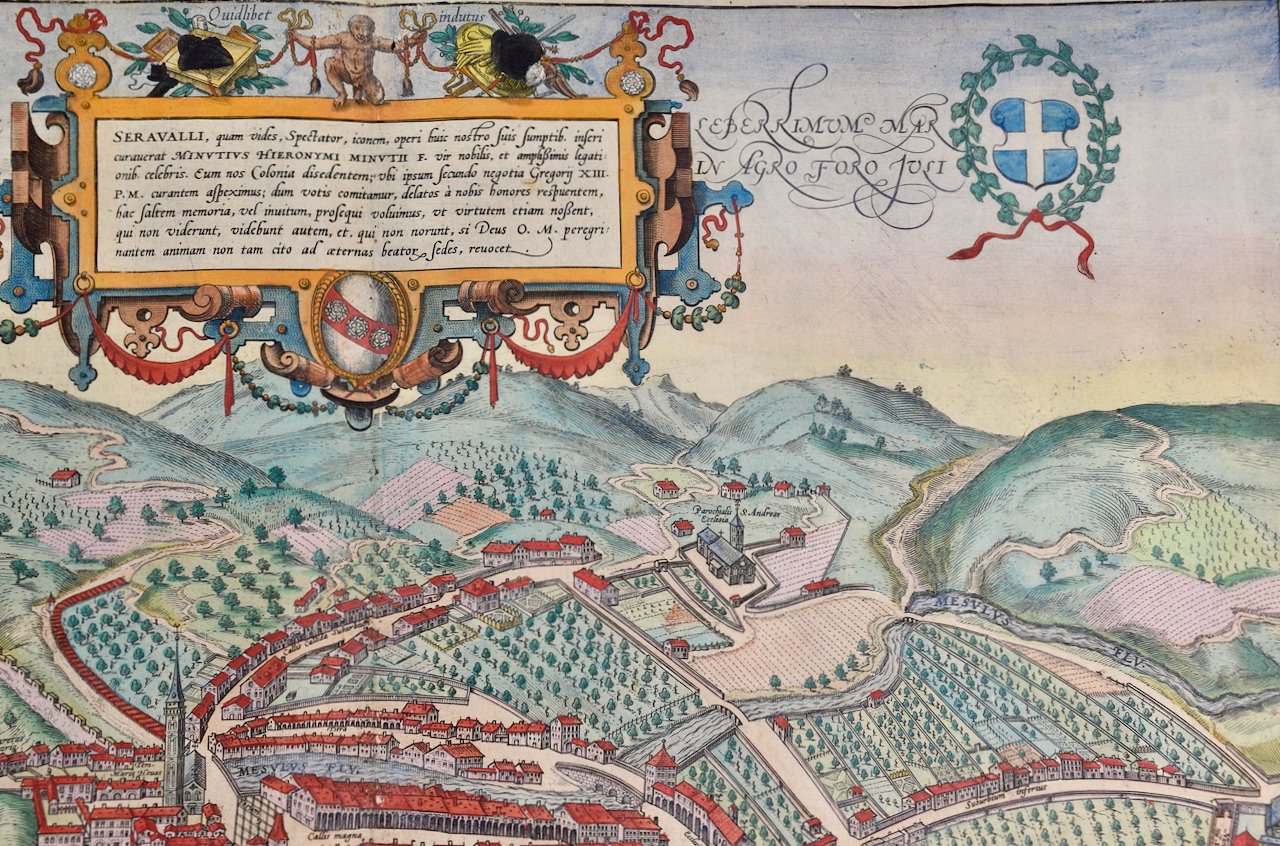 Quidlibet indutus
SERAVALLI, quam vides, Spectator, iconem, operi huic nostro suis sumptib. inseri
curaverat MINVTIVS HIERONYMI MINVTII F. vir nobilis, et amplissimis legati-
onib. celebris. Eum nos Colonia disedentem, vbi ipsum secundo negotia Gregorij XIII.
P.M. curantem aspeximus; dum votis comitamur, delatos à nobis honores respuentem,
hac saltem memoria, vel invitum, prosequi voluimus, vt virtutem etiam nossent,
qui non viderunt, videbunt autem, et, qui non norunt, si Deus O. M. peregri-
nantem animam non tam cito ad æternas beator. sedes, revocet.
LEBERRIMVM MAR
IN AGRO FORO JULI
Parochialis S. Andreæ
Ecclesia
MESVLVS FLV.
Callis
MESVLVS FLV.
Mariæ Novæ
Suburbium inferius
Callis magna